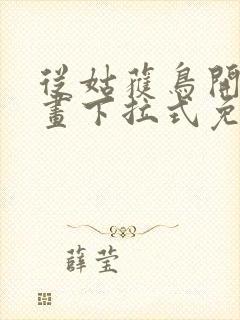 從姑獲鳥開
畫下拉式免
薛莹